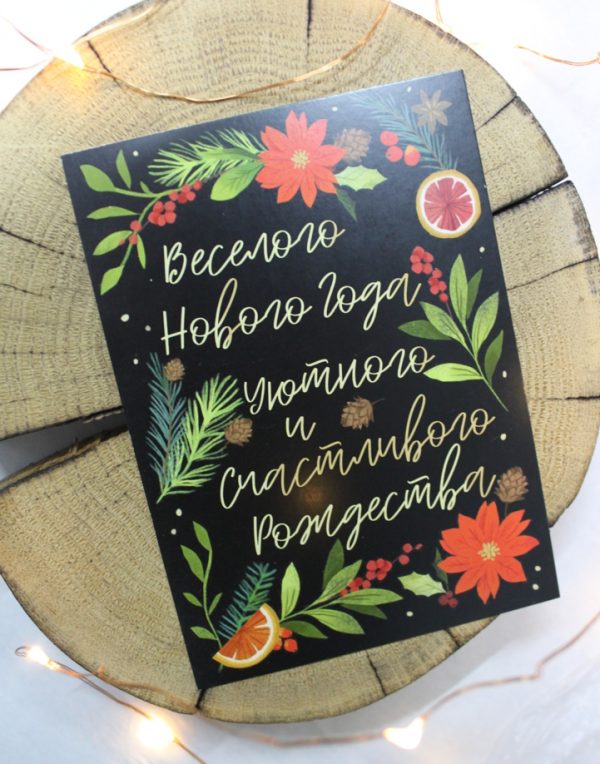 Веселого
Нового Года
уютного
и
Счастливого
Рождества